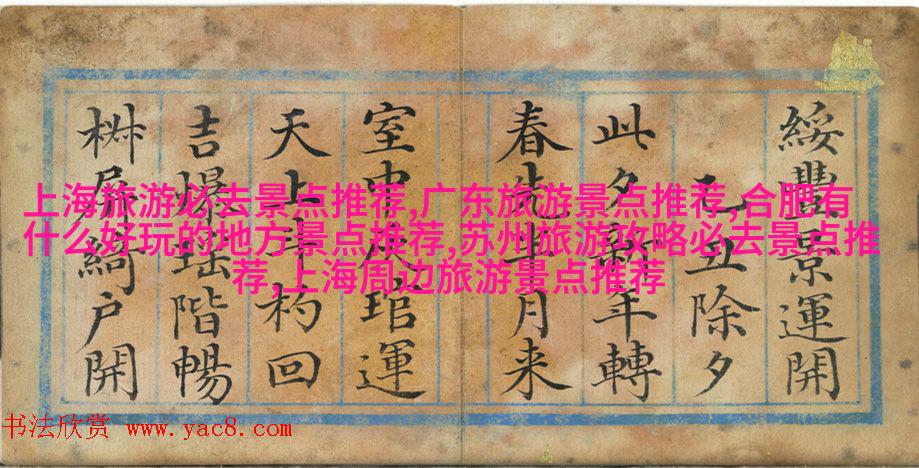 上海旅游必去景点推荐,广东旅游景点推荐,合肥有
什么好玩的地方景点推荐,苏州旅游攻略必去景点推
荐,上海周边旅游景点推荐
綏豐景運開
乙丑除夕
此夕新年轉
春先半月来
室中侯琯運
天上斗杓回
吉爆瑶階暢
椒屏綺户開
书法欣赏 www.yac8.com